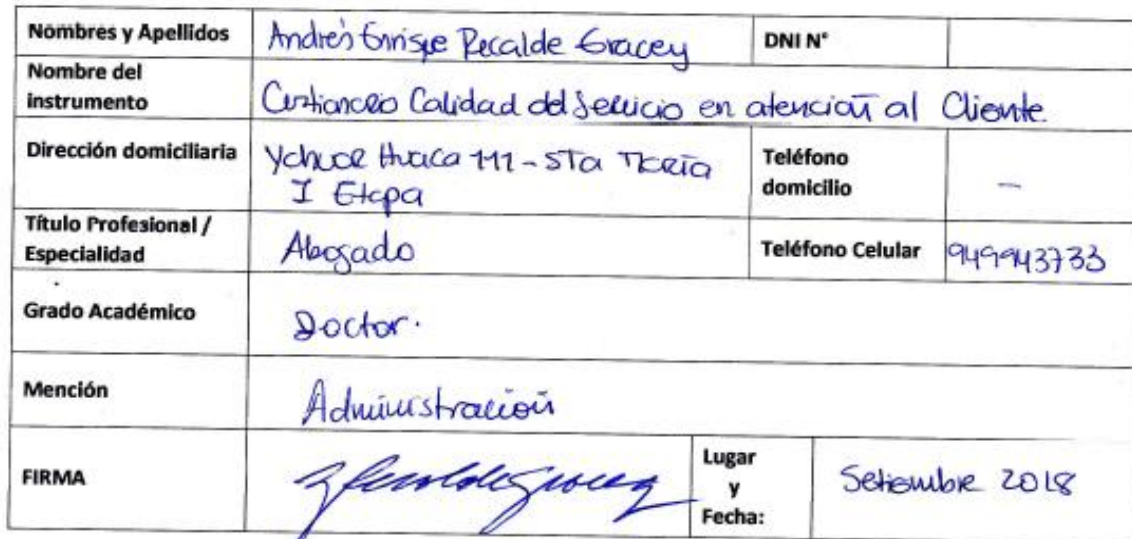 Nombres y Apellidos Andrés Enrique Recalde Gracey DNI N°
Nombre del
instrumento Custionario Calidad del Servicio en atención al Cliente
Dirección domiciliaria Huaca 111 - STa María
I Etapa
Teléfono
domicilio —
Título Profesional /
Especialidad Abogado Teléfono Celular 949943733
Grado Académico Doctor.
Mención Administración
FIRMA
Lugar
y
Fecha:
Setiembre 2018